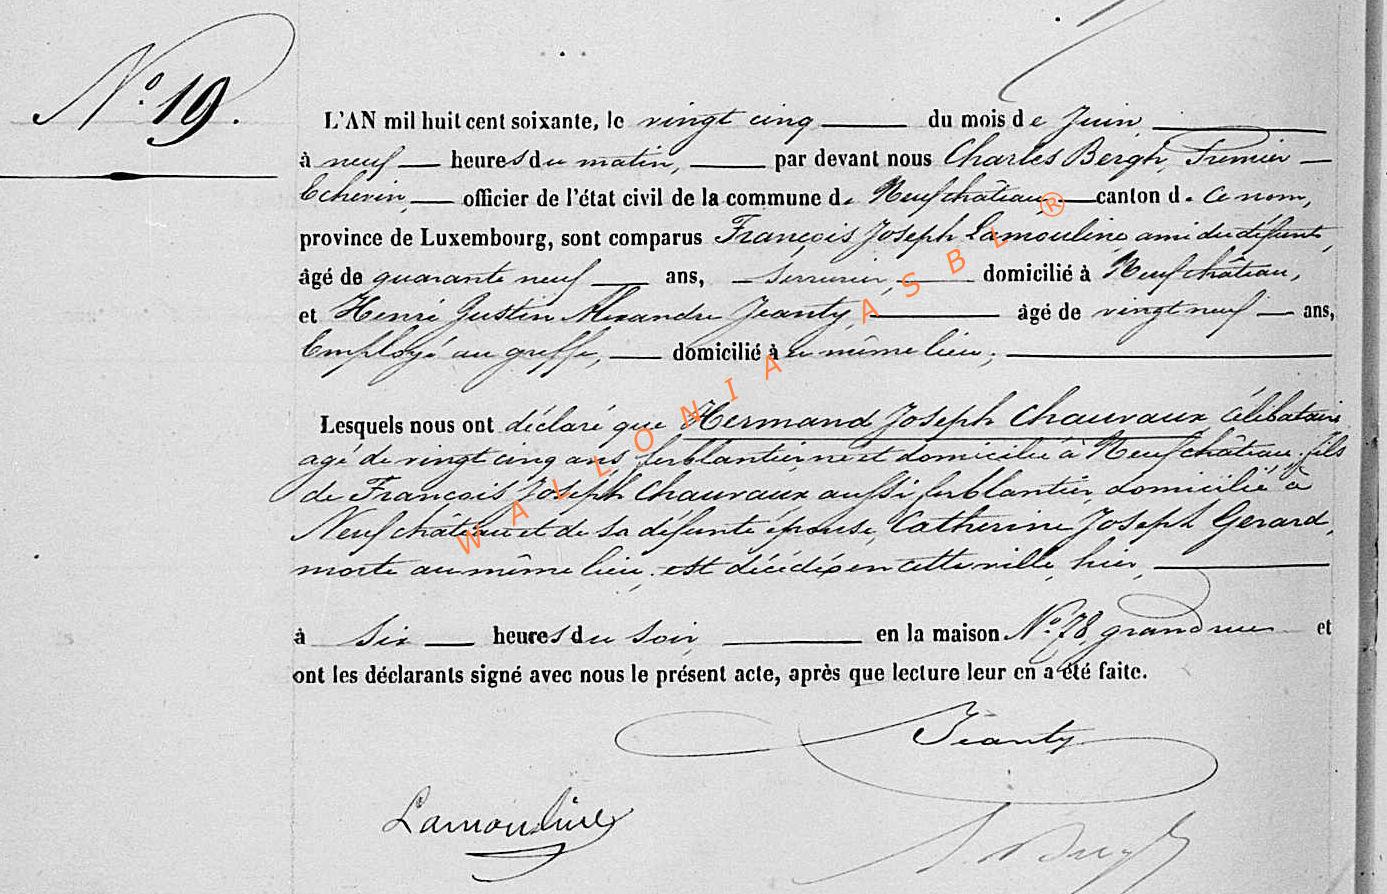 N° 19.
L'AN mil huit cent soixante, le vingt cinq du mois de Juin
à neuf heures du matin, par devant nous Charles Bergh, Premier
Echevin, officier de l'état civil de la commune de Neufchâteau, canton de ce nom,
province de Luxembourg, sont comparus François Joseph Lamouline ami du défunt,
âgé de quarante neuf ans, serrurier, domicilié à Neufchâteau,
et Henri Justin Alexandre Jeanty, âgé de vingt neuf ans,
Employé au greffe, domicilié à u même lieu;
Lesquels nous ont déclaré que Hermand Joseph Chauvaux, célibataire
agé de vingt cinq ans, ferblantier, né et domicilié à Neufchâteau, fils
de François Joseph Chauvaux aussi ferblantier, domicilié à
Neufchâteau et de sa défunte épouse, Catherine Joseph Gerard,
morte au même lieu, est décédé en cette ville, hier,
à six heures du soir, en la maison N° 78, grand rue et
ont les déclarants signé avec nous le présent acte, après que lecture leur en a été faite.
Jeanty
Lamouline
WALLONIA ASBL ®